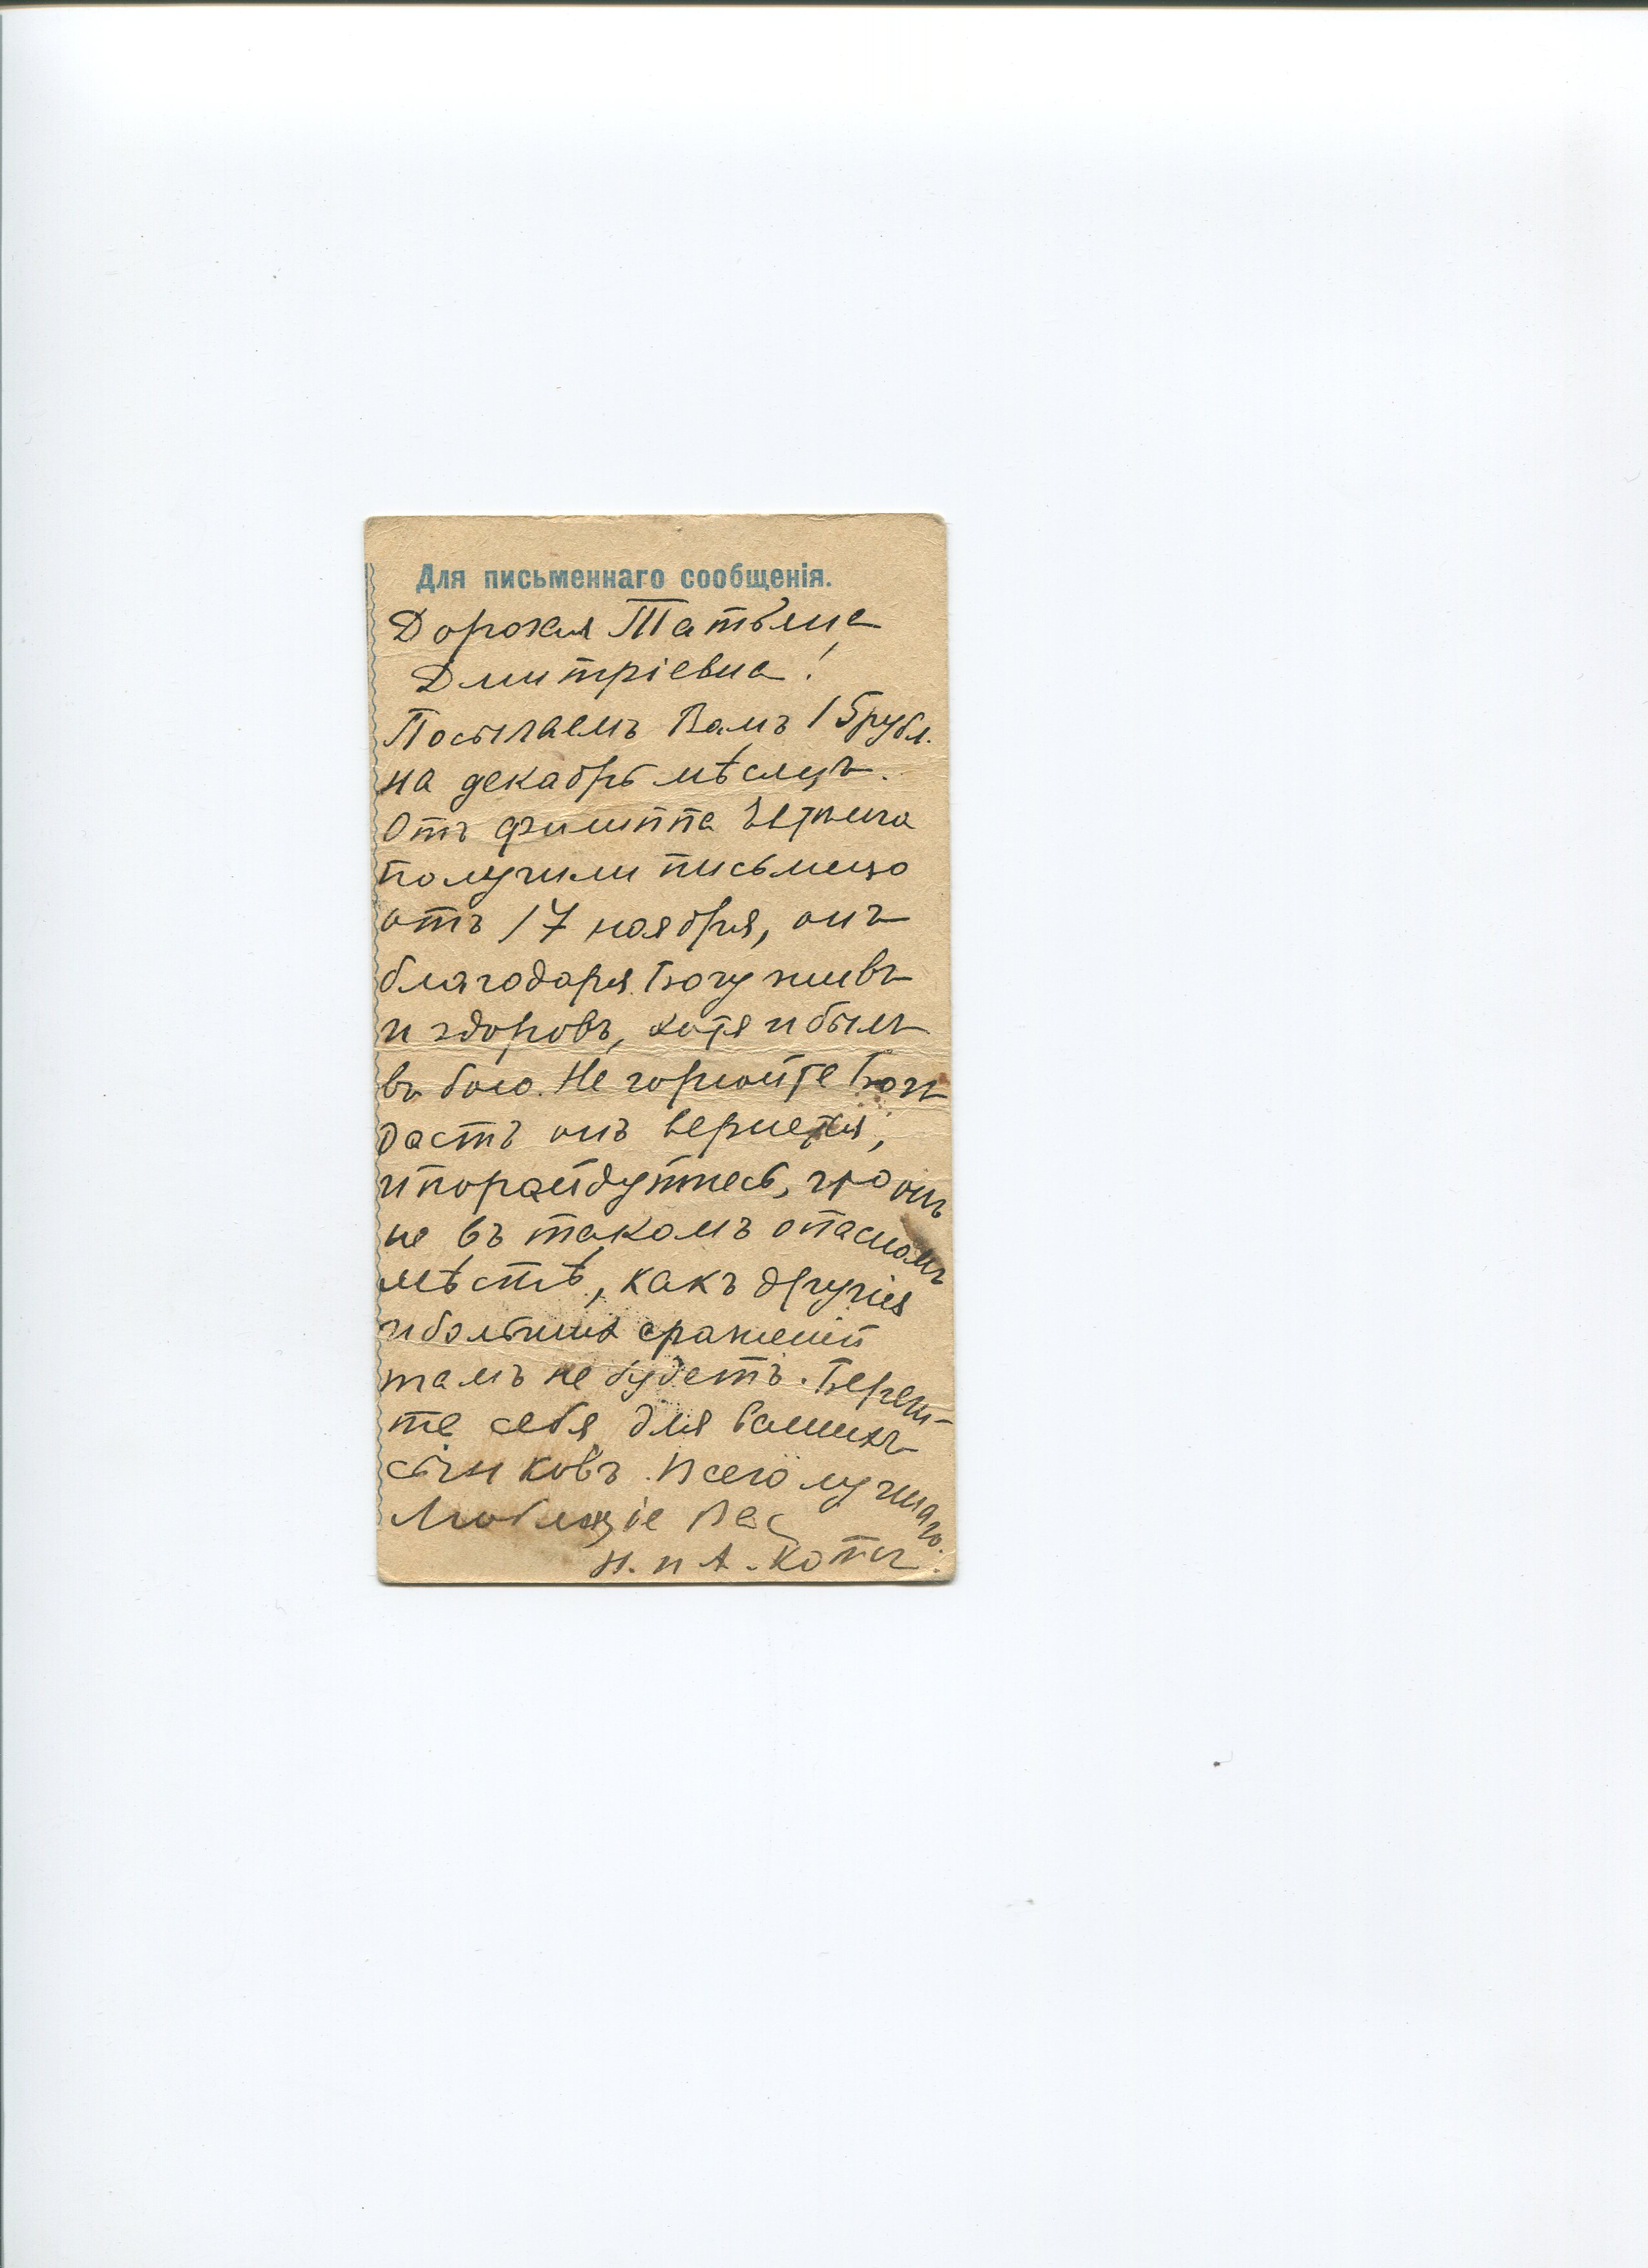 Для письменнаго сообщенія.
Дорогая Татьяна
Дмитріевна!
Посылаемъ Вамъ 15 рубл.
на декабрь мѣсяцъ.
Отъ Филиппа
получили письмецо
отъ 17 ноября, онъ
благодаря Богу живъ
и здоровъ, хотя и былъ
въ бою. Не горюйте Богъ
дастъ онъ вернется,
и порайдуйтесь, что онъ
не въ такомъ опасномъ
мѣстѣ, какъ другія
и большихъ сраженій
тамъ не будетъ. Береги-
те себя для Вашихъ
сынковъ. Всего лучшаго.
Любящіе Вас
Н. и А. Котъ.